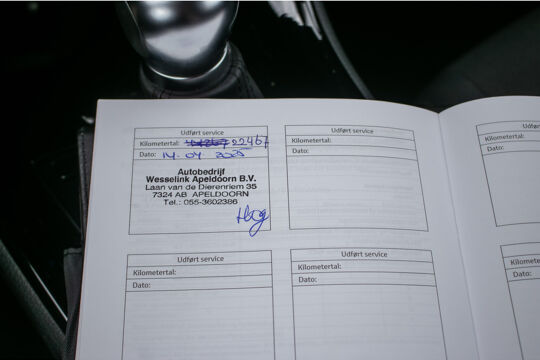 Udført service
Kilometertal: 22467
Dato: 14-04
Autobedrijf
Wesselink Apeldoorn B.V.
Laan van de Dierenriem 35
7324 AB APELDOORN
Tel.: 055-3602386
Udført service
Kilometertal:
Dato:
Udført service
Kilometertal:
Dato:
Udført service
Kilometertal:
Dato:
Udført
Kilometertal:
Dato:
Dato: